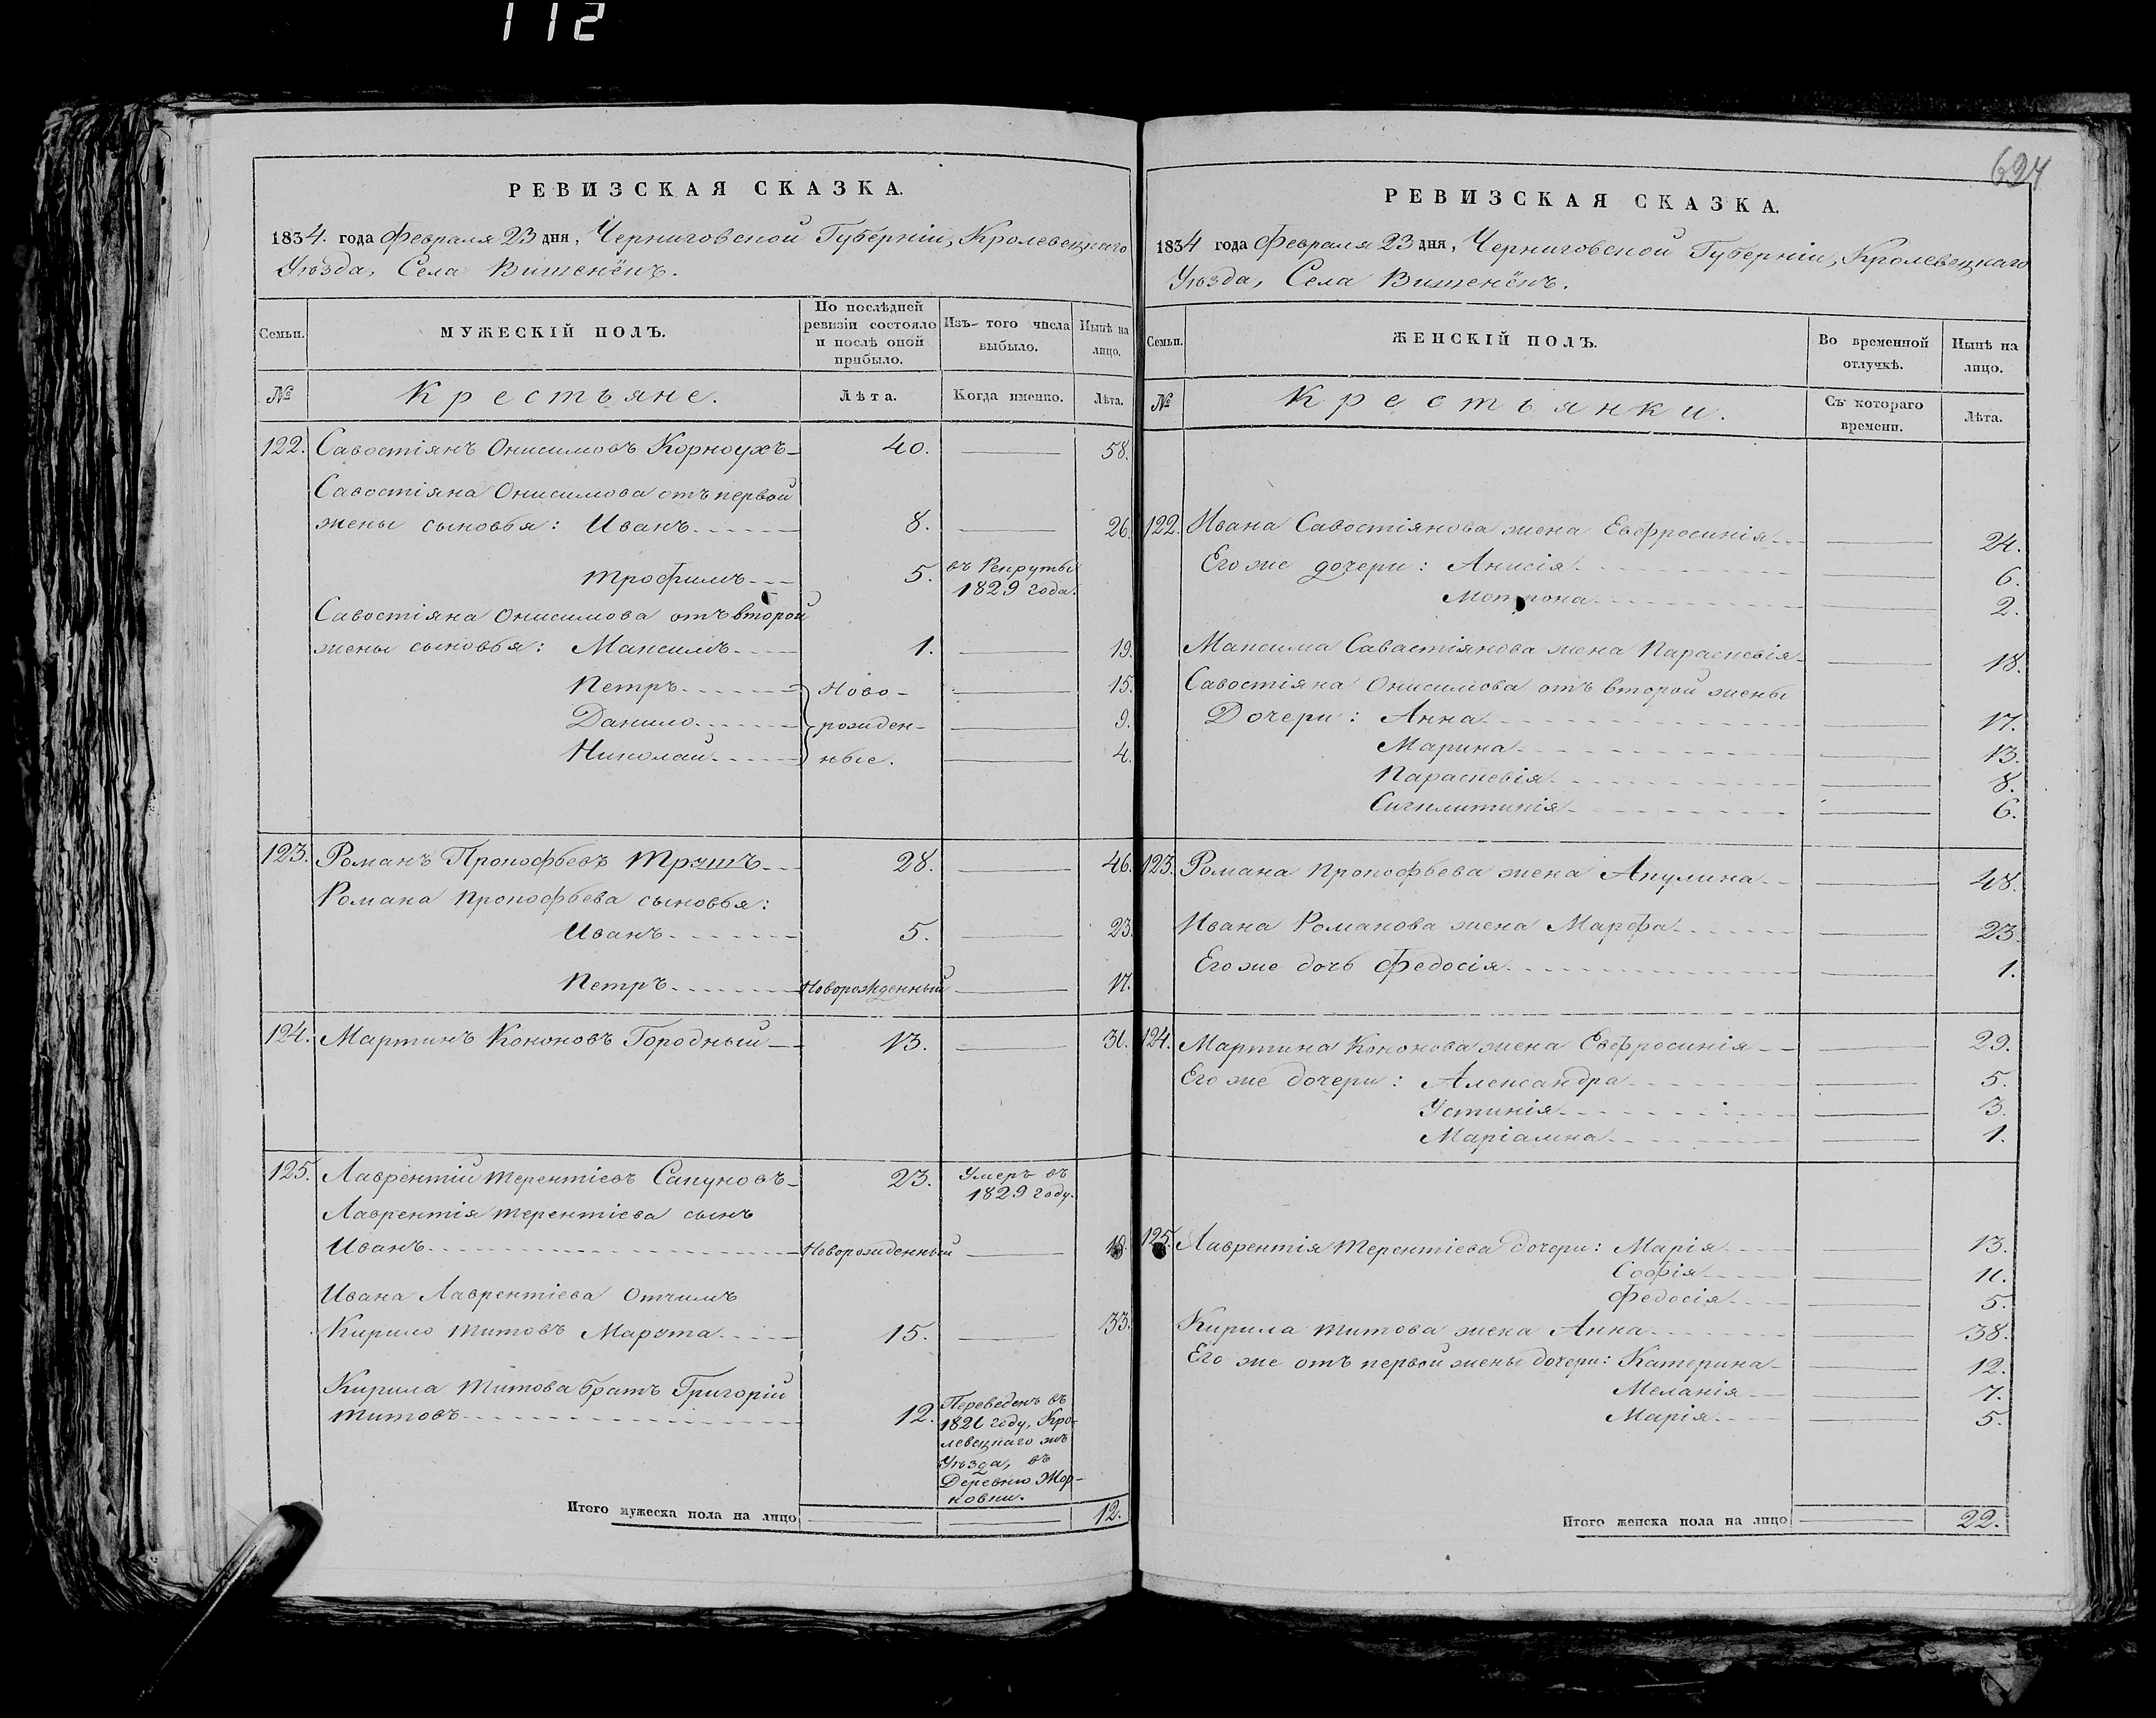 112
694
РЕВИЗСКАЯ СКАЗКА.
1834. года Февраля 23 дня, Черниговской Губерніи, Кролевецкаго
Уѣзда, Села Вишенёкъ.
Семьи. МУЖЕСКІЙ ПОЛЪ. По послѣдней ревизіи состояло и послѣ оной прибыло. Изъ-того числа выбыло. Нынѣ на лицо.
№ Крестьяне. Лѣта. Когда именно. Лѣта.
122. Савостіянъ Онисимовъ Корноухъ 40. 58.
Савостіяна Онисимова отъ первой
жены сыновья: Иванъ 8. 26.
Трофимъ 5. въ Рекруты 1829 года.
Савостіяна Онисимова отъ второй
жены сыновья: Максимъ 1. 19.
Петръ Ново- 15.
Данило рожден- 9.
Николай ные. 4.
123. Романъ Прокофьевъ Трушъ 28. 46.
Романа Прокофьева сыновья:
Иванъ 5. 23.
Петръ Новорожденный 17.
124. Мартинъ Кононовъ Городный 13. 31.
125. Лаврентій Терентіевъ Сапуновъ 23. Умеръ въ 1829 году.
Лаврентія Терентіева сынъ
Иванъ Новорожденный
Ивана Лаврентіева Отчимъ
Кирило Титовъ Марута 15. 33.
Кирила Титова братъ Григорій
Титовъ 12. Переведенъ въ
1821 году, Кро-
левецкаго жъ
Уѣзда, въ
Деревню Жор-
новки.
Итого мужеска пола на лицо 12.
РЕВИЗСКАЯ СКАЗКА.
1834 года Февраля 23 дня, Черниговской Губерніи, Кролевецкаго
Уѣзда, Села Вишенёкъ.
Семьи. ЖЕНСКІЙ ПОЛЪ. Во временной отлучкѣ. Нынѣ на лицо.
№ Крестьянки. Съ котораго времени. Лѣта.
122. Ивана Савостіянова жена Евфросинія 24.
Его же дочери: Анисія 6.
Мотрона 2.
Максима Савастіянова жена Параскевія 18.
Савостіяна Онисимова отъ второй жены
Дочери: Анна 17.
Марина 13.
Параскевія 8.
Сигклитикія 6.
123. Романа Прокофьева жена Акулина 48.
Ивана Романова жена Марфа 23.
Его же дочь Федосія 1.
124. Мартина Кононова жена Евфросинія 29.
Его же дочери: Александра 5.
Устинія 3.
Маріамна 1.
125. Лаврентія Терентіева дочери: Марія 13.
Софія 11.
Федосія 5.
Кирила Титова жена Анна 38.
Его же отъ первой жены дочери: Катерина 12.
Меланія 7.
Марія 5.
Итого женска пола на лицо 22.